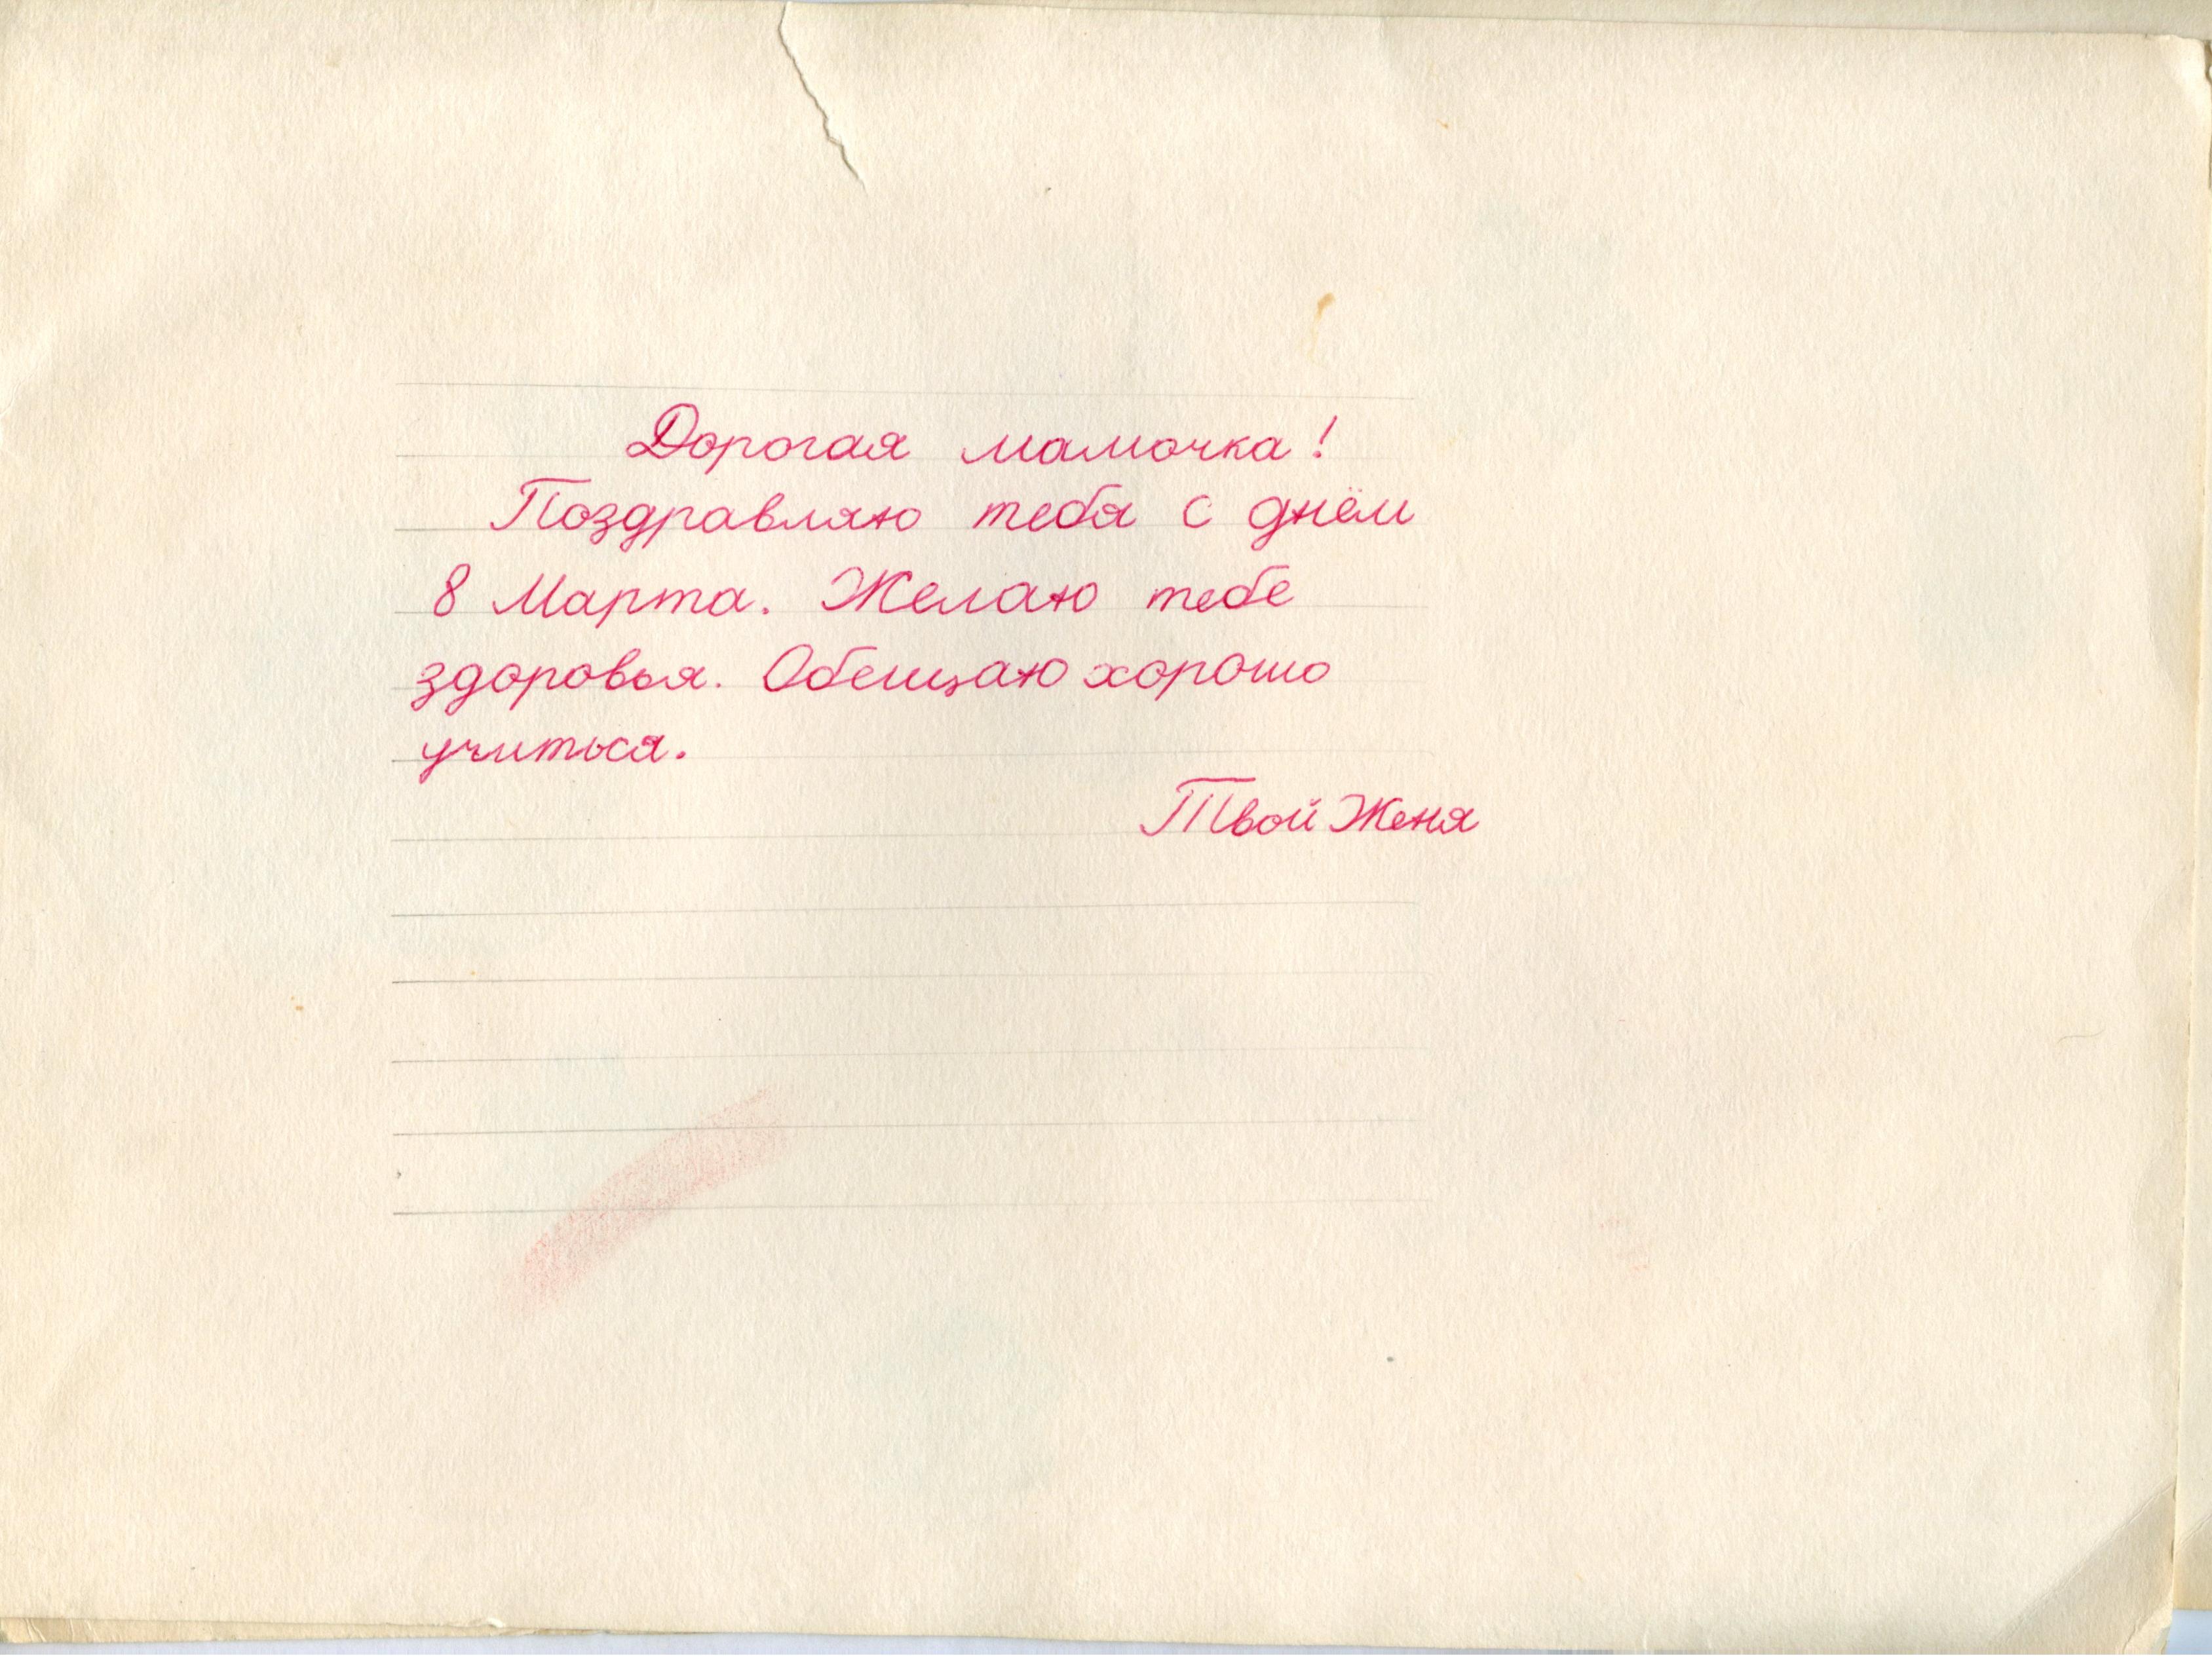 Дорогая мамочка!
Поздравляю тебя с днём
8 Марта. Желаю тебе
здоровья. Обещаю хорошо
учиться.
Твой Женя